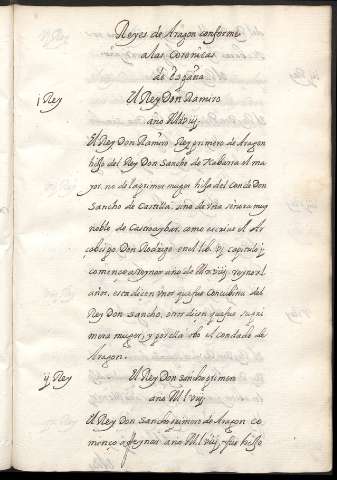 Reyes de Aragon conforme
a las Coronicas
de España
j Rey El Rey Don Ramiro
año
El Rey Don Ramiro Rey primero de Aragon
hijo del Rey Don Sancho de Nabarra el ma
yor, no de la primer muger hija del Conde Don
Sancho de Castilla, sino de vna señora muy
noble de Castroaybar, como escriue el Ar
cobispo Don Rodrigo en el lib. vj capitulo
començo a Reynar año de reyno
años, esta dicen vnos que fue Concubina del
Rey Don Sancho, otros dicen que fue su pri
mera muger, y por ella vbo el condado de
Aragon.
ij Rey El Rey Don Sancho primero
año
El Rey Don Sancho primero de Aragon co
menço a Reynar año y fue hijo